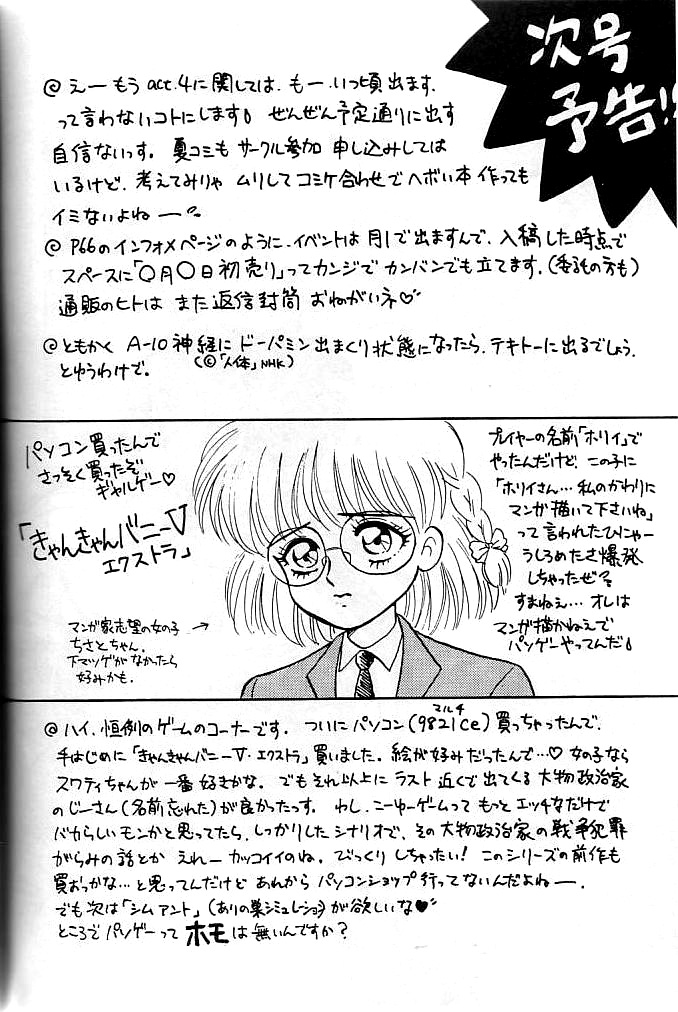 次号
予告!!
@ えーもう act.4に関しては、もー、いつ頃出ます、
って言わないコトにします。ぜんぜん予定通りに出す
自信ないっす。夏コミも サークル参加 申し込みしては
いるけど、考えてみりゃ ムリしてコミケ合わせでヘボい本 作っても
イミないよねー。
@ P66のインフォメページのように、イベントは 月1で出ますんで、入稿した時点で
スペースに「○月○日初売り」ってカンジで カンバンでも立てます。(委託の方も)
通販のヒトは また返信封筒 おねがいネ♡
@ともかく A-10神経に ドーパミン出まくり状態になったら、テキトーに出るでしょう。
(©「人体」NHK)
とゆうわけで。
パソコン買ったんで
さっそく買ったぞ
ギャルゲー♡
「きゃんきゃんバニーV
エクストラ」
マンガ家志望の女の子 →
ちさとちゃん。
下マツゲがなかったら
好みかも。
プレイヤーの名前「ホリイ」で
やったんだけど、この子に
「ホリイさん…私のかわりに
マンガ描いて下さいね」
って言われたひにゃー
うしろめたさ爆発
しちゃったぜ
すまねえ…オレは
マンガ描かねえで
パソゲーやってんだ
@ハイ、恒例のゲームのコーナーです。ついにパソコン(9821Ce)買っちゃったんで、
マルチ
手はじめに「きゃんきゃんバニーV・エクストラ」買いました。絵が好みだったんで…♡ 女の子なら
スワティちゃんが 一番 好きかな。でもそれ以上に ラスト 近くで出てくる 大物政治家
のじーさん(名前忘れた)が良かったっす。わし、こーゆーゲームって もっと エッチなだけで
バカらしいモンかと思ってたら、しっかりしたシナリオで、その大物政治家の戦争犯罪
がらみの話とか えれー カッコイイのね。びっくり しちゃったい! このシリーズの前作も
買おっかな…と思ってんだけど あれから パソコンショップ行ってないんだよねー。
でも次は「シムアント」(ありの巣シミュレーション)が欲しいな♥
ところでパソゲーって ホモは無いんですか?